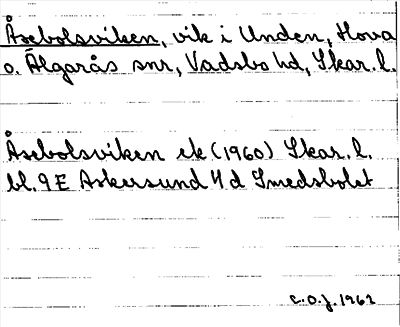 Åsebolsviken, vik i Unden, Hova
o. Älgarås snr, Vadsbo hd, Skar. l.
Åsebolsviken ek (1960) Skar. l.
bl. 9E Askersund 4 d Smedsbolet
C.O.J. 1962